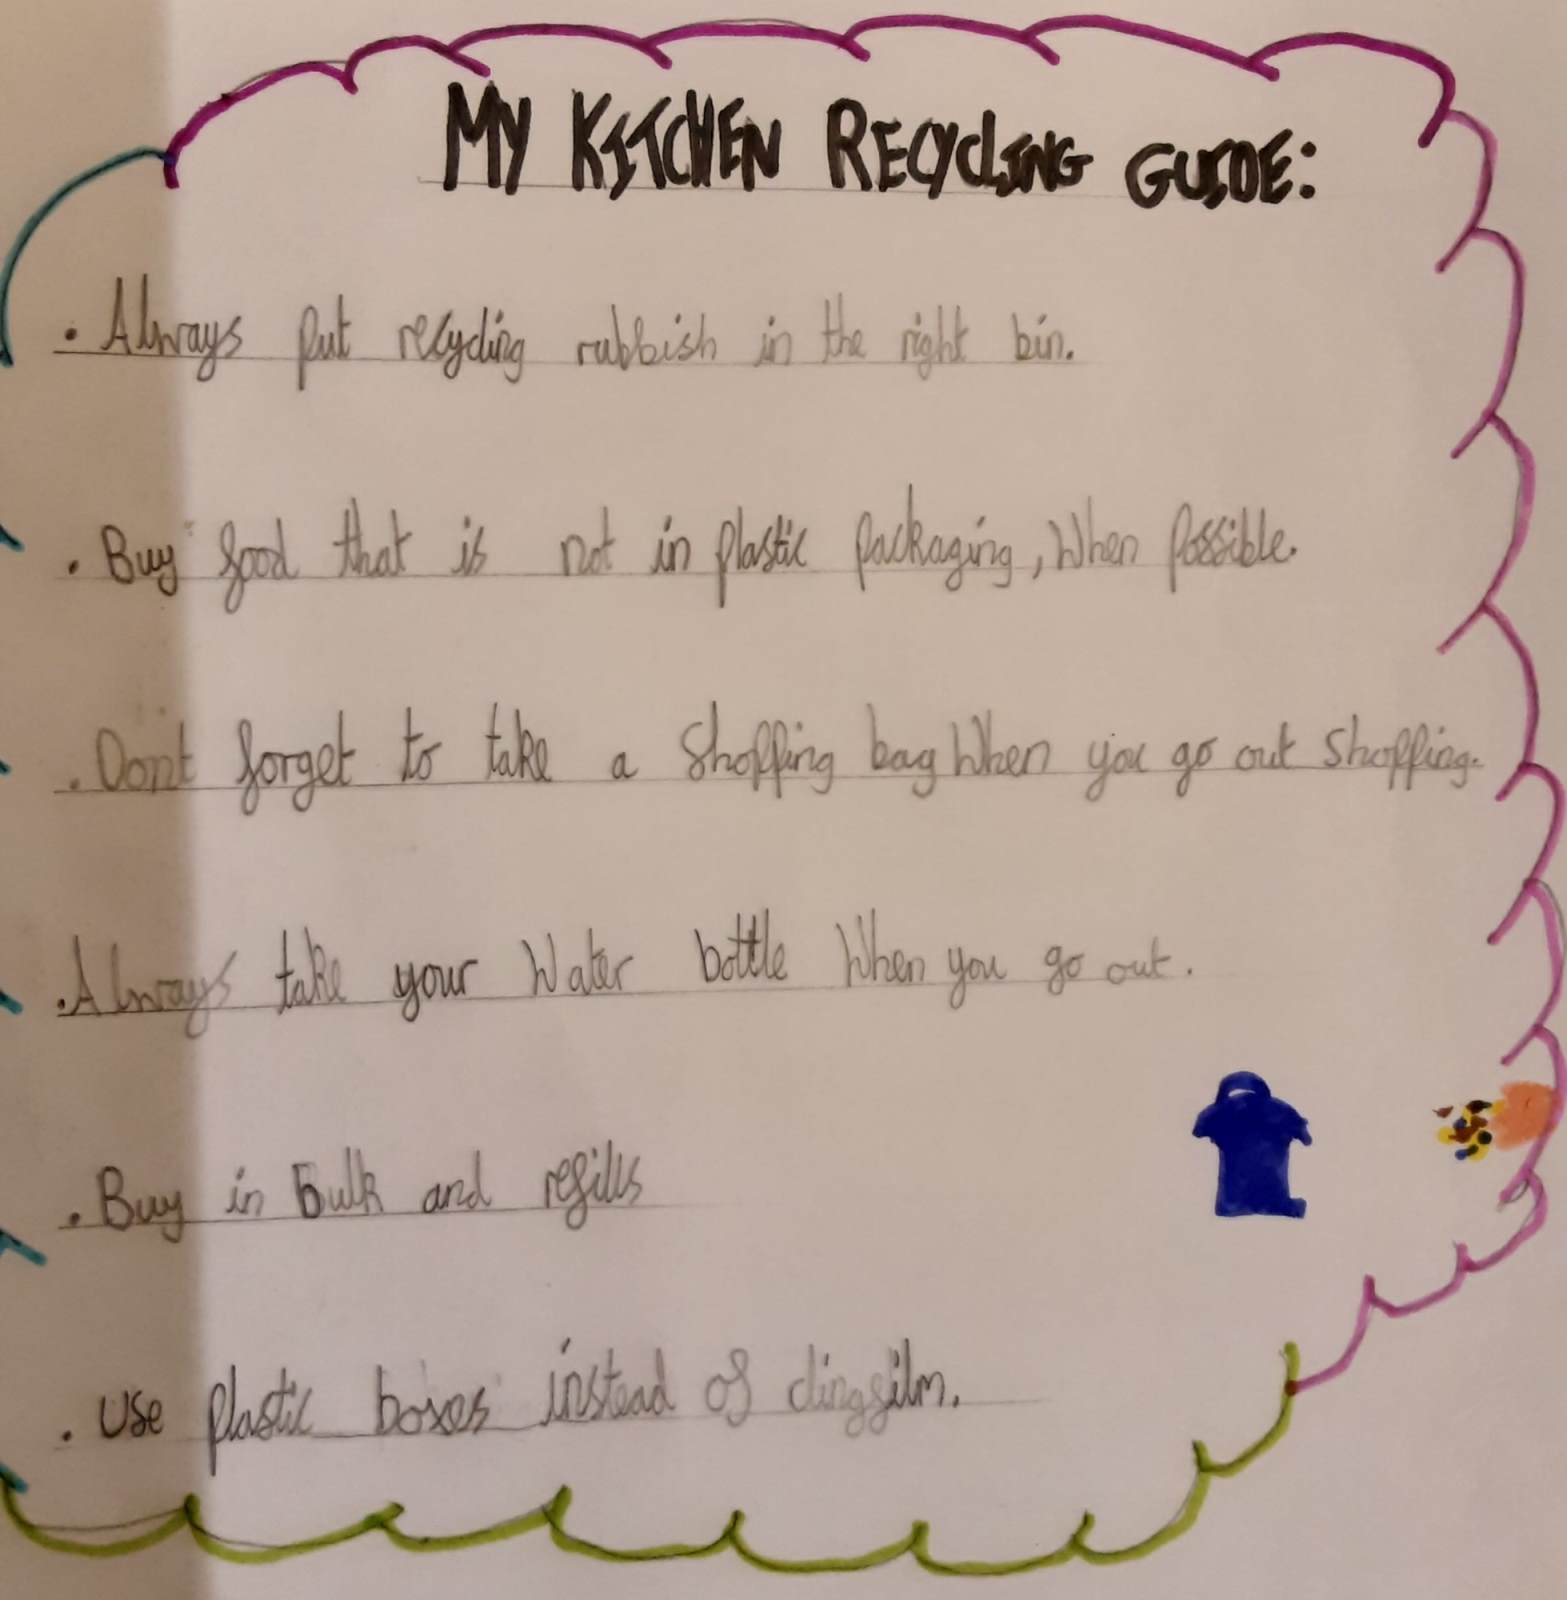 MY KITCHEN RECYCLING GUIDE:
. Always put recycling rubbish in the right bin.
. Buy food that is not in plastic packaging, When possible.
. Don't forget to take a Shopping bag When you go out Shopping.
. Always take your Water bottle When you go out.
. Buy in Bulk and refills
. Use plastic boxes instead of clingfilm.